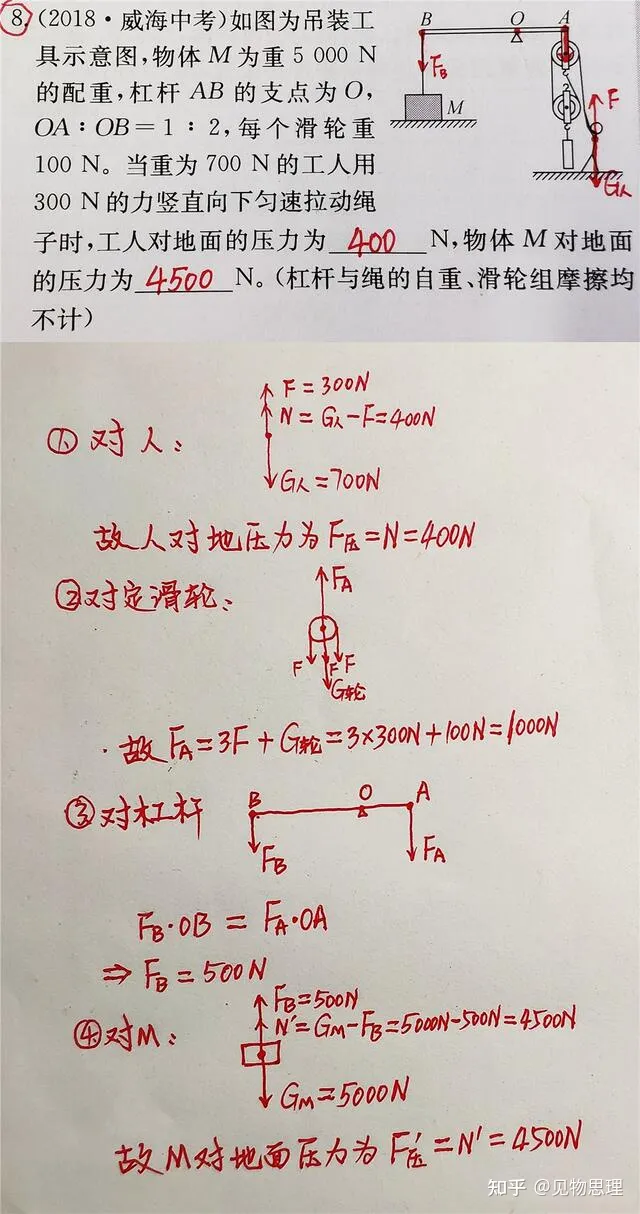 8.(2018·威海中考)如图为吊装工
具示意图,物体 M 为重 5 000 N
的配重,杠杆 AB 的支点为 O,
OA∶OB=1∶2,每个滑轮重
100 N。当重为 700 N 的工人用
300 N 的力竖直向下匀速拉动绳
子时,工人对地面的压力为 400 N,物体 M 对地面
的压力为 4500 N。(杠杆与绳的自重、滑轮组摩擦均
不计)
B O A
F_B
M
F
G人
F=300N
①对人:
N=G人-F=400N
G人=700N
故人对地压力为F压=N=400N
②对定滑轮:
F_A
F F F
G轮
故 F_A=3F+G轮=3×300N+100N=1000N
③对杠杆
B O A
F_B F_A
F_B·OB=F_A·OA
⇒F_B=500N
F_B=500N
④对M:
N'=G_M-F_B=5000N-500N=4500N
G_M=5000N
故M对地面压力为F压'=N'=4500N
知乎 @见物思理